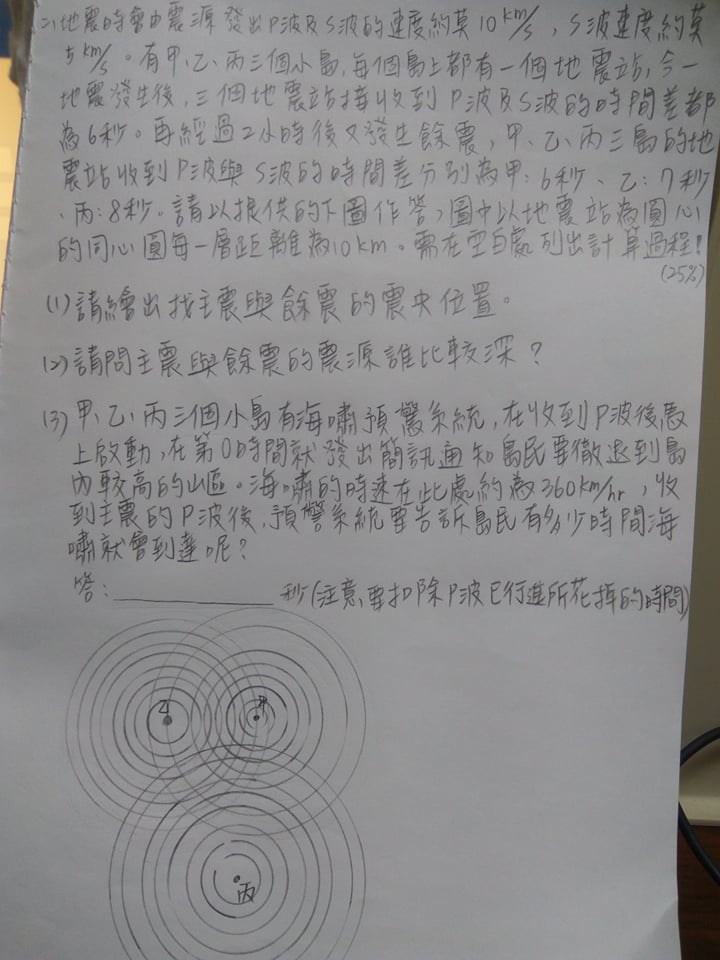 二、地震時會由震源發出P波及S波的速度約莫10 km/s，S波速度約莫
5 km/s。有甲、乙、丙三個小島，每個島上都有一個地震站，今一
地震發生後，三個地震站接收到P波及S波的時間差都
為6秒。再經過2小時後又發生餘震，甲、乙、丙三島的地
震站收到P波與S波的時間差分別為甲：6秒、乙：7秒
、丙：8秒。請以提供的下圖作答，圖中以地震站為圓心
的同心圓每一層距離為10km。需在空白處列出計算過程！
(25%)
(1) 請繪出找主震與餘震的震央位置。
(2) 請問主震與餘震的震源誰比較深？
(3) 甲、乙、丙三個小島有海嘯預警系統，在收到P波後馬
上啟動，在第0時間就發出簡訊通知島民要徹退到島
內較高的山區。海嘯的時速在此處約為360km/hr，收
到主震的P波後，預警系統要告訴島民有多少時間海
嘯就會到達呢？
答：________ 秒(注意，要扣除P波已行進所花掉的時間)
乙 甲
丙